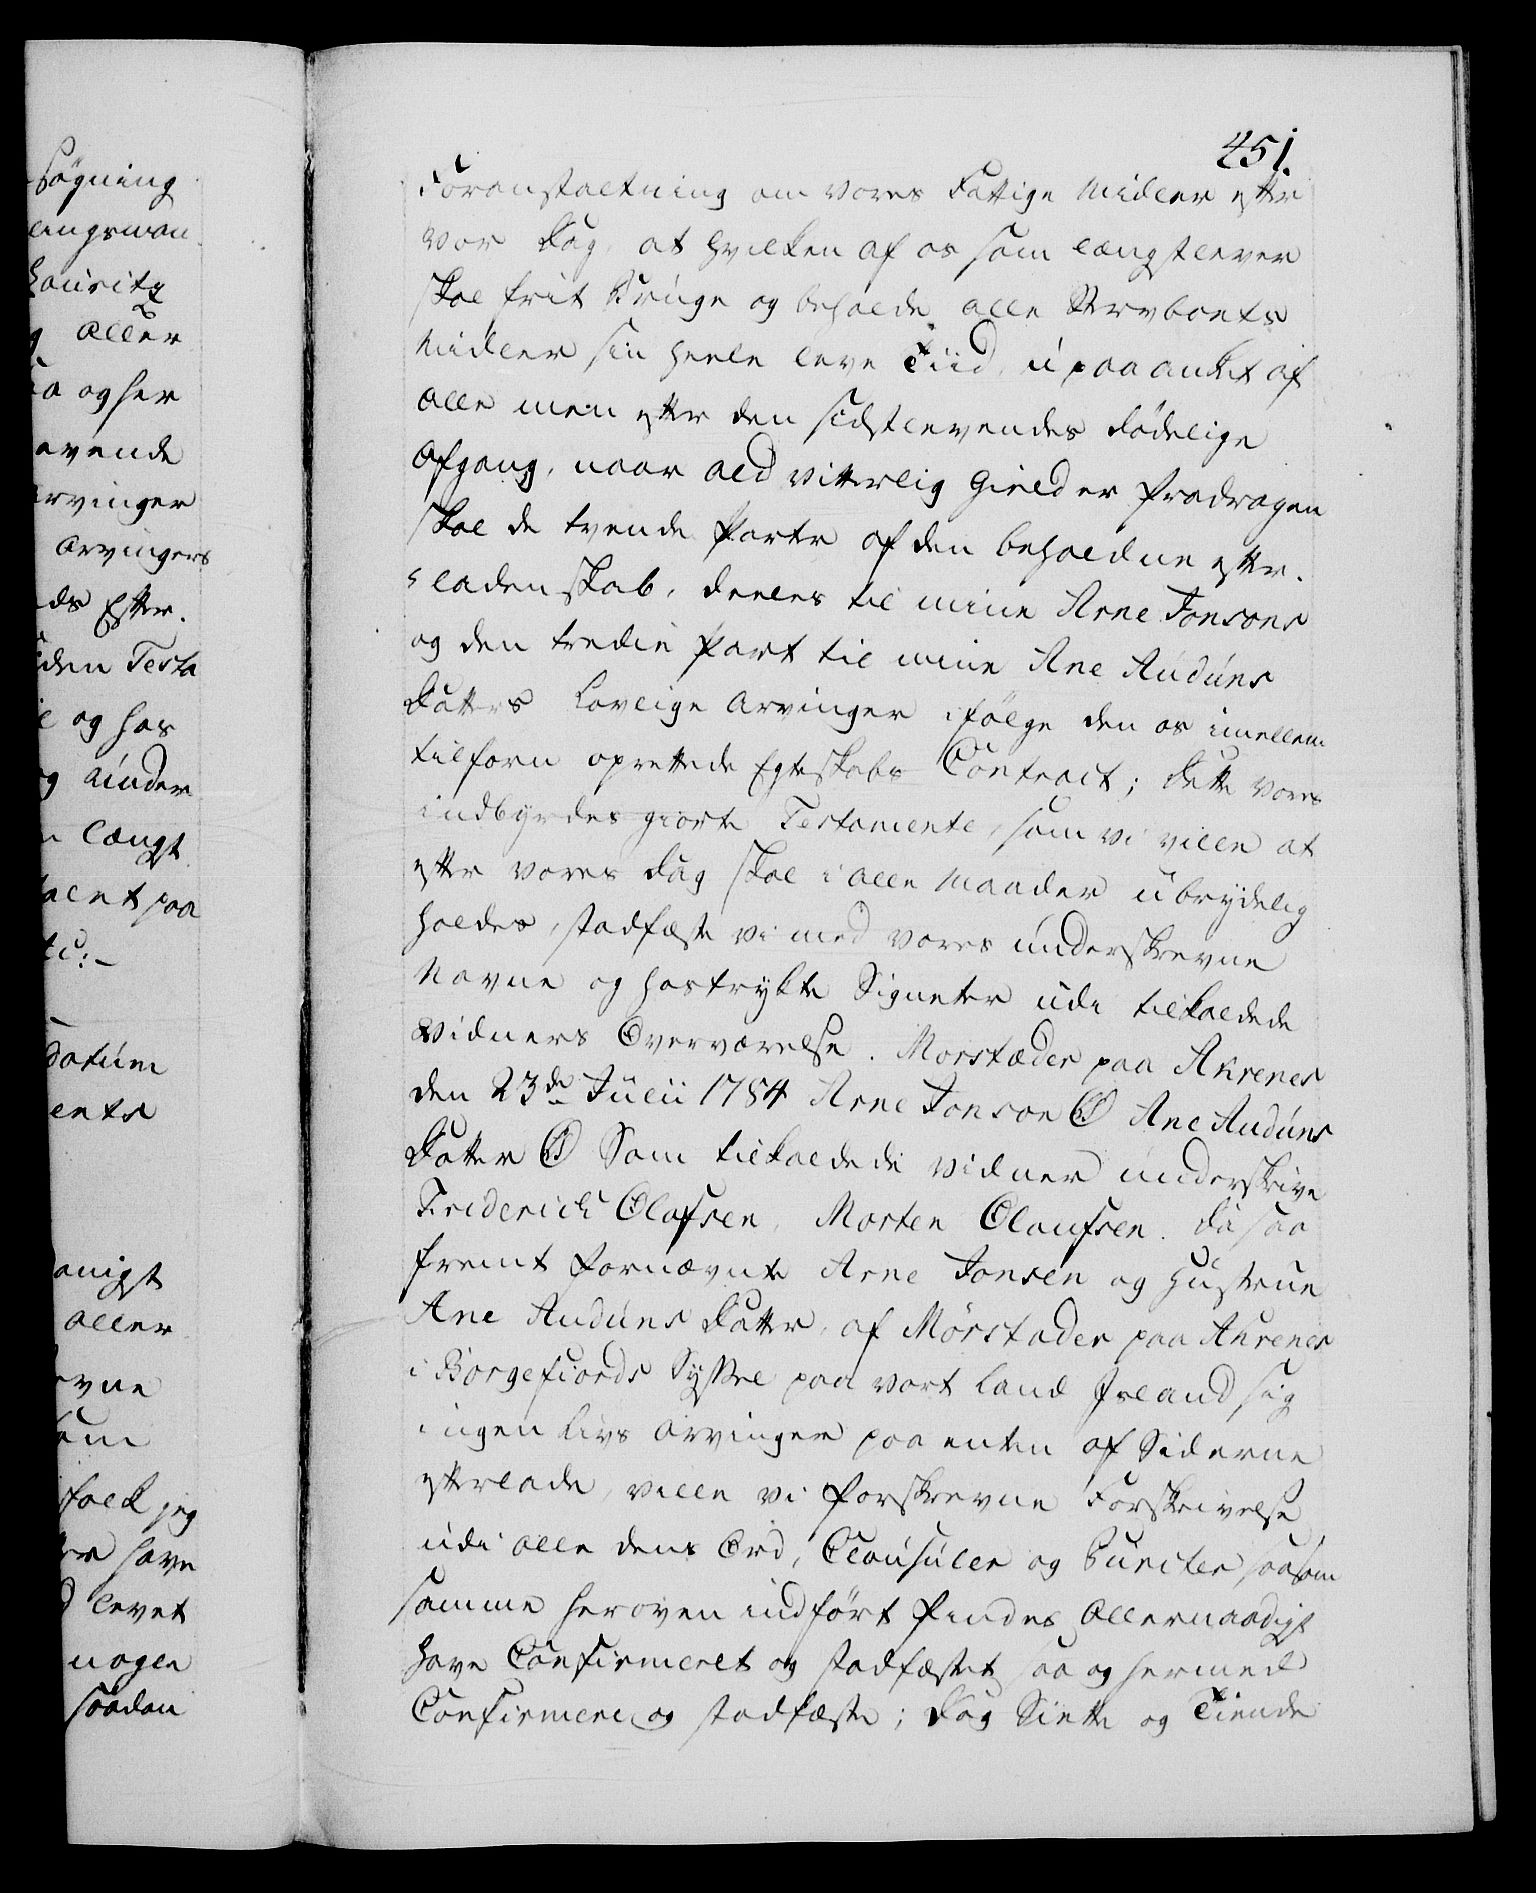 søgning
lingsman
Lauritz
og Aller
saa og her
levende
Arvinger
Arvingers
ds Efter.
den Testa
og hos
og under
længst
paa
tc:-
datum
ents
aller
som
folk jeg
er have
levet
nogen
saadan
451.
Foranstaltning om vores Fattige Midler efter
vor Dag, at hvilken af os som længstlever
skal frit Bruge og beholde alle Stervboets
Midler sin heele leve Tiid, upaaanket af
alle men efter den sidstlevendes dødelige
Afgang, naar ald vitterlig Gield er fradragen
skal de tvende Parter af den beholdne efter-
ladenskab, deeles til mine Arne Jonsons
og den tredie Part til mine Ane Auduns
Datters Lovlige Arvinger ifølge den os imellem
tilforn oprettede Egteskabs Contract; dette vores
indbyrdes giorte Testamente, som vi ville at
efter vores Dag skal i alle Maader ubrydelig
holdes, stadfæste vi med vores underskrevne
Navne og hostrykte Signeter udi tilkaldede
Vidners Overværelse. Morstæder paa Akrenes
den 23de Julii 1784 Arne Jonson Ane Auduns
Datter Som tilkaldede vidner underskrive
Friderich Olafsen, Morten Olaufsen. Da saa
fremt fornævnte Arne Jonsen og Hustrue
Ane Auduns Datter, af Mørstader paa Akrenes
i Borgefiords Syssel paa vort Land Island sig
ingen Livs Arvinger paa enten af Siderne
efterlade, ville vi forskrevne Forskrivelse
udi alle dens Ord, Clausuler og Puncter, saasom
samme heroven indført findes Allernaadigst
have Confirmeret og stadfæstet saa og hermed
Confirmere og stadfæste; Dog Siette og Tiende